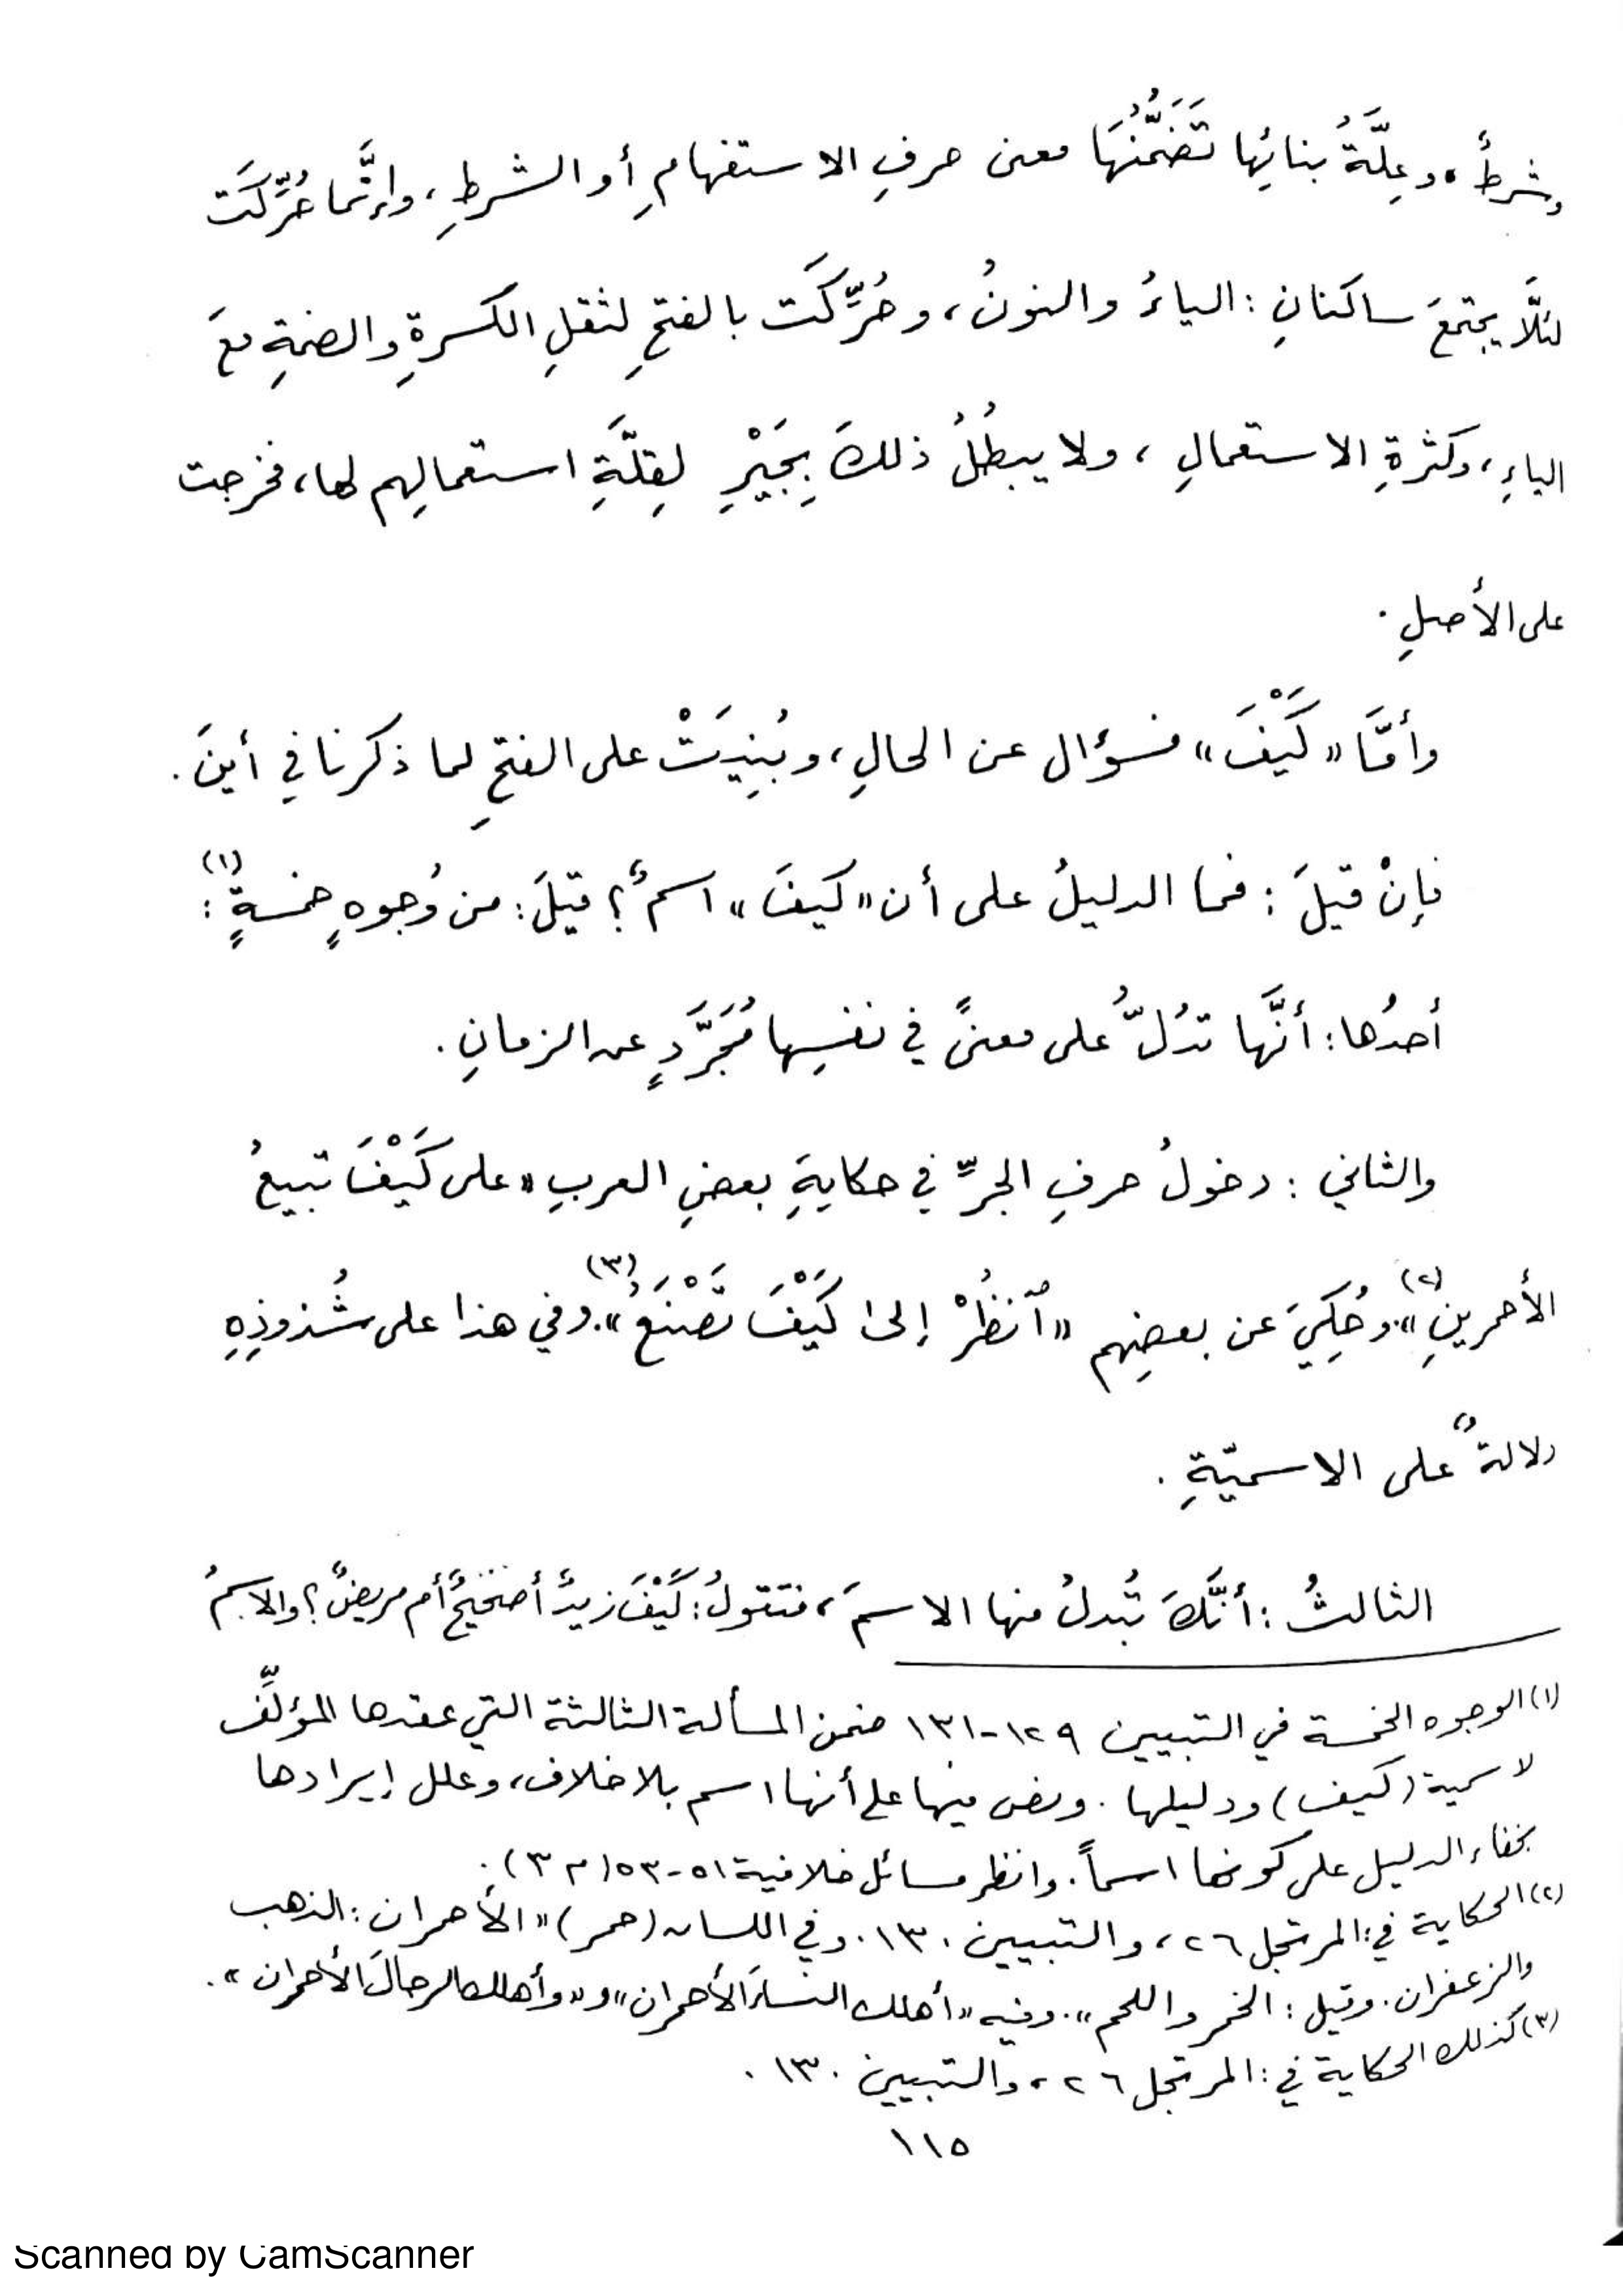 وشرطٌ، وعِلَّةُ بنائِها تَضَمُّنُهَا معنى حرفِ الاستفهامِ أو الشرطِ، وإنَّما حُرِّكَت
لئلَّا يجتمعَ ساكنانِ: الياءُ والنونُ، وحُرِّكَت بالفتحِ لثقلِ الكسرةِ والضمةِ معَ
الياءِ، وكثرةِ الاستعمالِ، ولا يبطُلُ ذلكَ بِجَيْرِ لِقِلَّةِ استعمالِهِم لها، فخرجت
على الأصلِ.
وأمَّا «كَيْفَ» فسؤال عن الحالِ، وبُنِيَتْ على الفتحِ لما ذكرنا في أينَ.
فإنْ قيلَ: فما الدليلُ على أن «كيفَ» اسمٌ؟ قيلَ: من وُجوهٍ خمسةٍ(١):
أحدُها: أنَّها تدُلُّ على معنىً في نفسِها مُجَرَّدٍ عن الزمانِ.
والثاني: دخولُ حرفِ الجرِّ في حكايةِ بعضِ العربِ «على كَيْفَ تبيعُ
الأحمرينِ(٢)». وحُكِيَ عن بعضِهم «ٱنظُرْ إلى كَيْفَ تَصْنَعُ(٣)». وفي هذا على شُذوذِهِ
دلالةٌ على الاسميّةِ.
الثالثُ: أنَّكَ تُبدلُ منها الاسمَ، فتقولُ: كَيْفَ زيدٌ أصحيحٌ أم مريضٌ؟ والاسمُ
(١) الوجوه الخمسة في التبيين ١٢٩-١٣١ ضمن المسألة الثالثة التي عقدها المؤلِّف
لاسمية (كيف) ودليلها. ونص فيها على أنها اسم بلا خلاف، وعلل إيرادها
بخفاء الدليل على كونها اسماً. وانظر مسائل خلافية ٥١-٥٣ (م ٣).
(٢) الحكاية في: المرتجل ٢٦، والتبيين ١٣٠. وفي اللسان (حمر) «الأحمران: الذهب
والزعفران. وقيل: الخمر واللحم». وفيه «أهلك النساءَ الأحمران» و«وأهلك الرجالَ الأحمران».
(٣) كذلك الحكاية في: المرتجل ٢٦، والتبيين ١٣٠.
١١٥
Scanned by CamScanner